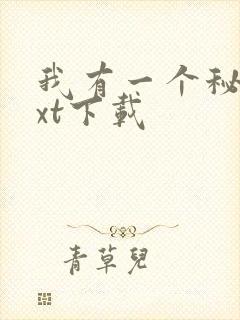 我有一个秘
xt下載
青草兒